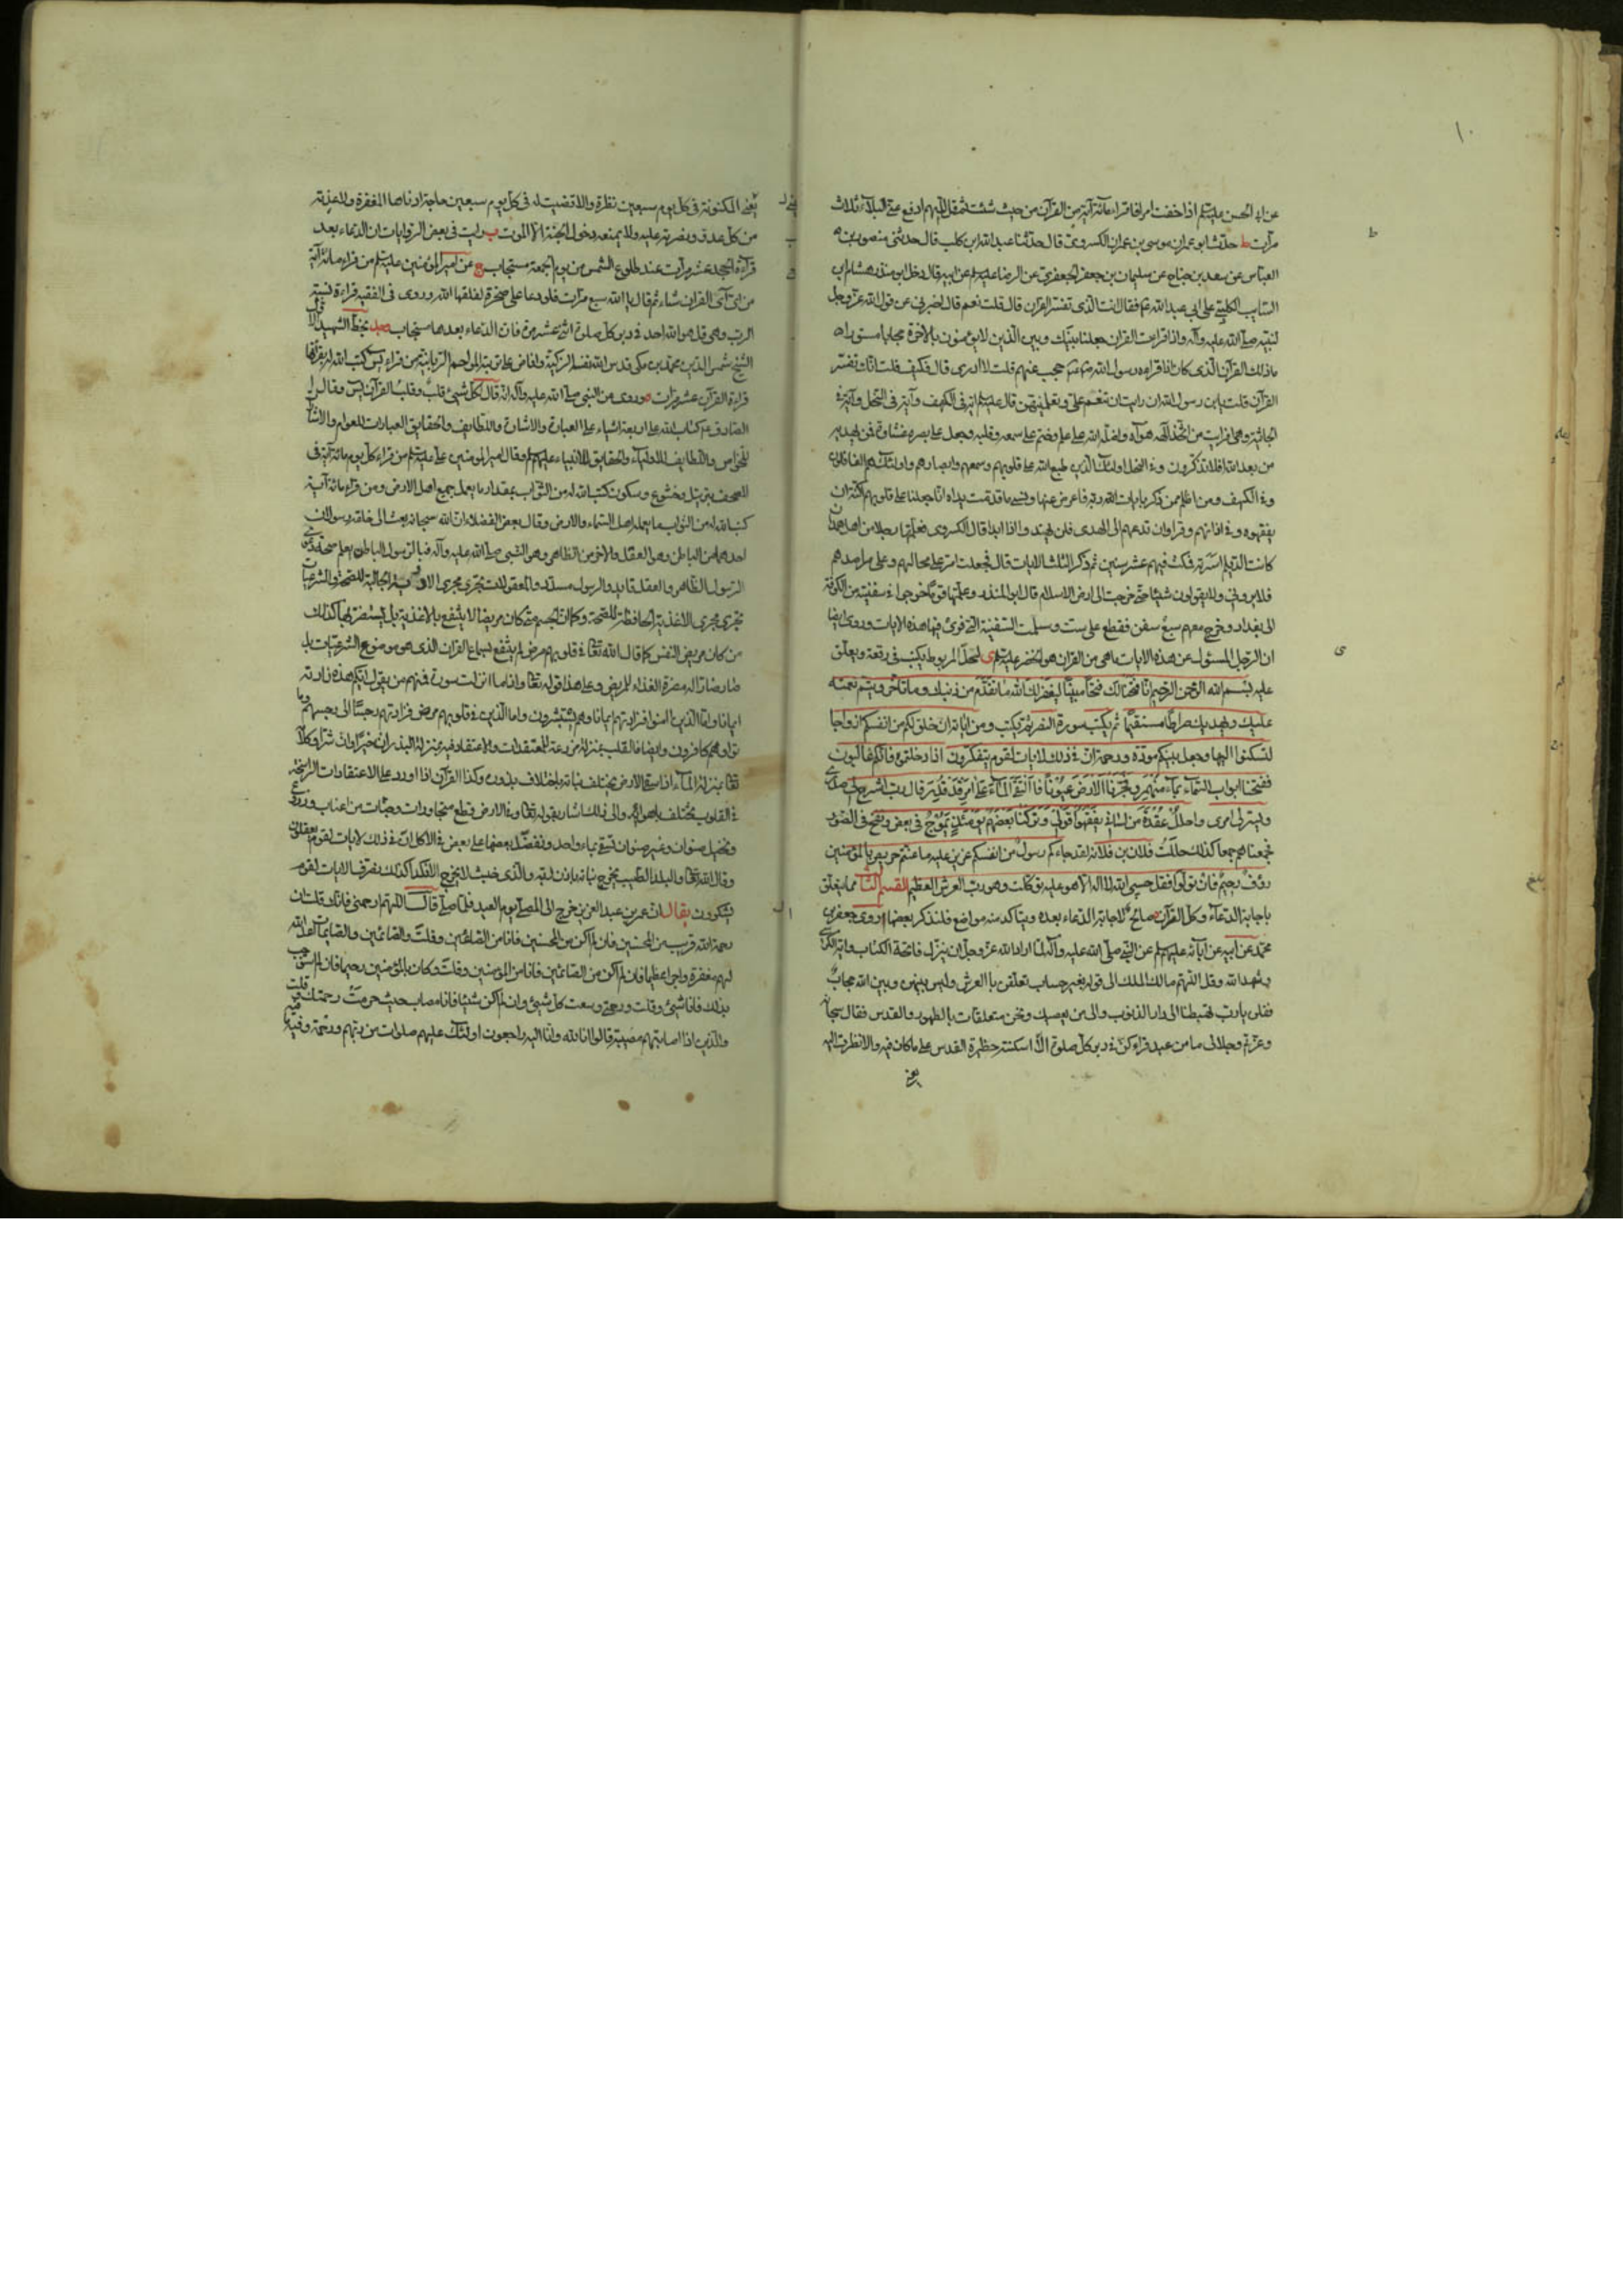 ١٠
عن ابى الحسن عليه السلم اذا خفت امرا فاقراء مائة آية من القرآن من حيث شئت ثم قل اللهم ادفع عنى البلاء ثلاث
مرات ط حدثنا ابو عمران موسى بن عمران الكسروى قال حدثنا عبد الله بن كليب قال حدثنى منصور بن
العباس عن سعد بن جناح عن سليمان بن جعفر الجعفرى عن الرضا عليه السلم عن ابيه قال دخل ابو منذر هشام بن
السايب الكلبى على ابى عبد الله ع فقال انت الذى تفسر القرآن قال قلت نعم قال اخبرنى عن قول الله عز وجل
لنبيه صلى الله عليه وآله واذا قرات القران جعلنا بينك وبين الذين لا يؤمنون بالاخرة حجابا مستورا
ما ذلك القرآن الذى كان اذا قراه رسول الله حجب عنهم قلت لا ادرى قال فكيف قلت انك تفسر
القرآن قلت يابن رسول الله ان رايت ان تنعم على وتعلمنيهن قال عليه السلم آية فى الكهف وآية فى النحل وآية فى
الجاثية وهى افرايت من اتخذ الهه هواه واضله الله على علم وختم على سمعه وقلبه وجعل على بصره غشاوة فمن يهديه
من بعد الله افلا تذكرون وفى النحل اولئك الذين طبع الله على قلوبهم وسمعهم وابصارهم واولئك هم الغافلون
وفى الكهف ومن اظلم ممن ذكر بايات ربه فاعرض عنها ونسى ما قدمت يداه انا جعلنا على قلوبهم اكنة ان
يفقهوه وفى اذانهم وقرا وان تدعهم الى الهدى فلن يهتدوا اذا ابدا قال الكسروى فعلمتها رجلا من اهل همدان
كانت الديلم اسرته فمكث فيهم عشر سنين ثم ذكر الثلث الايات قال فجعلت امر على محالهم وعلى مراصدهم
فلا يرونى ولا يقولون شيئا حتى خرجت الى ارض الاسلام قال ابو المنذر وعلمتها قوما خرجوا فى سفينة من الكوفة
الى بغداد وخرج معهم سبع سفن فقطع على ست وسلمت السفينة التى قرئ فيها هذه الايات وروى ايضا
ان الرجل المسئول عن هذه الايات ما هى من القران هو الخضر عليه السلم ى لحل المربوط يكتب فى رقعة ويعلق
عليه بسم الله الرحمن الرحيم انا فتحنا لك فتحا مبينا ليغفر لك الله ما تقدم من ذنبك وما تاخر ويتم نعمته
عليك ويهديك صراطا مستقيما ثم يكتب سورة النصر ثم يكتب ومن اياته ان خلق لكم من انفسكم ازواجا
لتسكنوا اليها وجعل بينكم مودة ورحمة ان فى ذلك لايات لقوم يتفكرون اذا دخلتموه فانكم غالبون
ففتحنا ابواب السماء بماء منهمر وفجرنا الارض عيونا فالتقى الماء على امر قد قدر قال رب اشرح لى صدرى
ويسر لى امرى واحلل عقدة من لسانى يفقهوا قولى وتركنا بعضهم يومئذ يموج فى بعض ونفخ فى الصور
فجمعناهم جمعا كذلك حللت فلان بن فلانة لقد جاءكم رسول من انفسكم عزيز عليه ما عنتم حريص عليكم بالمؤمنين
رؤف رحيم فان تولوا فقل حسبى الله لا اله الا هو عليه توكلت وهو رب العرش العظيم القسم الثانى مما يتعلق
باجابة الدعاء وكل القرآن صالح لاجابة الدعاء بعده ويتاكد منه مواضع فلنذكر بعضها ا روى جعفر بن
محمد عن ابيه عن ابائه عليهم السلم عن النبى صلى الله عليه وآله لما اراد الله عز وجل ان ينزل فاتحة الكتاب واية الكرسى
وشهد الله وقل اللهم مالك الملك الى قوله بغير حساب تعلقن بالعرش وليس بينهن وبين الله حجاب
فقلن يا رب تهبطنا الى دار الذنوب والى من يعصيك ونحن متعلقات بالطهور والقدس فقال سبحانه
وعزتى وجلالى ما من عبد قراءكن فى دبر كل صلوة الا اسكنته حظيرة القدس على ما كان فيه والا نظرت اليه
بعينى
بعينى المكنونة فى كل يوم سبعين نظرة والا قضيت له فى كل يوم سبعين حاجة ادناها المغفرة والاعذته
من كل عدو ونصرته عليه ولا يمنعه دخول الجنة الا الموت ب رايت فى بعض الروايات ان الدعاء بعد
قرآءة الجحد عشر مرات عند طلوع الشمس من يوم الجمعة مستجاب ج عن امير المؤمنين عليه السلم من قراء مائة آية
من اى آى القران شاء ثم قال يا الله سبع مرات فلو دعا على صخرة لفلقها الله وروى فى الفقيه قراءة نسبة
الرب وهى قل هو الله احد فى دبر كل صلوة اثنى عشر مرة فان الدعاء بعدها مستجاب بخط الشهيد
الشيخ شمس الدين محمد بن مكى قدس الله نفسه الزكية وافاض على تربته المراحم الربانية من قراء يس كتب الله له بقرآتها
قراءة القرآن عشر مرات وروى من النبى صلى الله عليه وآله انه قال لكل شيئ قلب وقلب القرآن يس وقال
الصادق ع كتاب الله على اربعة اشياء على العبارة والاشارة واللطايف والحقايق العبارات للعوام والاشارة
للخواص واللطايف للاولياء والحقايق للانبياء عليهم السلم وقال امير المومنين على عليه السلم من قراء كل يوم مائة آية فى
المصحف بترتيل وخشوع وسكون كتب الله له من الثواب بمقدار ما يعمله جميع اهل الارض ومن قراء مائة آية
كتب الله له من الثواب ما يعمله اهل السماء والارض وقال بعض الفضلاء ان الله سبحانه بعث الى خلقه رسولان
احدهما من الباطن وهو العقل والاخر من الظاهر وهو النبى صلى الله عليه وآله فبالرسول الباطن يعلم صحة دعوى
الرسول الظاهر والعقل قايد والرسول مسدد والمعقولات تجرى مجرى الادوية الجالبة للصحة والشرعيات
تجرى مجرى الاغذية الحافظة للصحة وكما ان الجسم متى كان مريضا لا ينتفع بالاغذية بل يستضر بها كذلك
من كان مريض النفس كما قال الله تعالى فى قلوبهم مرض لم ينتفع بسماع القران الذى هو موضوع الشرعيات بل
صار ضارا له مضرة الغذاء للمريض وعلى هذا قوله تعالى واذا ما انزلت سورة فمنهم من يقول ايكم هذه زادته
ايمانا فاما الذين امنوا فزادتهم ايمانا وهم يستبشرون واما الذين فى قلوبهم مرض فزادتهم رجسا الى رجسهم وما
توا وهم كافرون وايضا فالقلب بمنزلة مزرعة للمعتقدات والاعتقاد فيه بمنزلة البذر ان خيرا وان شرا وكلام
تعالى بمنزلة الماء اذا سقى الارض يختلف نباته باختلاف بذوره وكذا القرآن اذا اورد على الاعتقادات الراسخة
فى القلوب يختلف والى ذلك اشار بقوله تعالى وفى الارض قطع متجاورات وجنات من اعناب وزرع
ونخيل صنوان وغير صنوان تسقى بماء واحد ونفضل بعضها على بعض فى الاكل ان فى ذلك لايات لقوم يعقلون
وقال الله تعالى والبلد الطيب يخرج نباته باذن ربه والذى خبث لا يخرج الا نكدا كذلك نصرف الايات لقوم
يشكرون يقال ان عمر بن عبد العزيز خرج الى المصلى يوم العيد فلما صلى قال اللهم ارحمنى فانك قلت ان
رحمة الله قريب من المحسنين فان لم اكن من المحسنين فانا من الصائمين وقلت والصائمين والصايمات اعد الله
لهم مغفرة واجرا عظيما فان لم اكن من الصائمين فانا من المؤمنين وقلت وكان بالمؤمنين رحيما فان لم استوجب
بذلك فانا شيئ وقلت ورحمتى وسعت كل شيئ وان لم اكن شيئا فانا مصاب حيث حرمت رحمتك وقلت
والذين اذا اصابتهم مصيبة قالوا انا لله وانا اليه راجعون اولئك عليهم صلوات من ربهم ورحمة